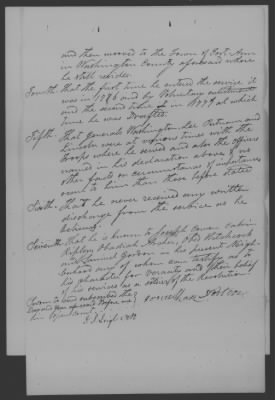 and then moved to the Town of Fort Ann
in Washington County aforesaid where
he still resides
Fourth That the first time he entered the service it
was in 1776 and by Voluntary enlistment
and the second time in 1777 at which
time he was Drafted
Fifth That generals Washington Lee Putnam and
Lincoln were at various times with the
troops where he served and also the officers
named in his declaration above
other facts or circumstances of importance
occur to him than those before stated
Sixth That he never received any written
discharge from the service as he
believes
Seventh That he is known to Joseph Owen Calvin
Ripley Obadiah Archer Otis Hitchcock
and Samuel Gordon in his present Neigh-
borhood any of whom can testify as to
his character for veracity and their belief
of his services as a soldier of the Revolution
Sworn to and subscribed the
Day and year aforesaid Before me